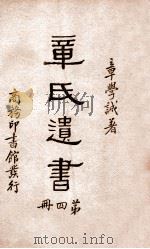 章學誠著
章氏遺書
第四冊
商務印書館發行